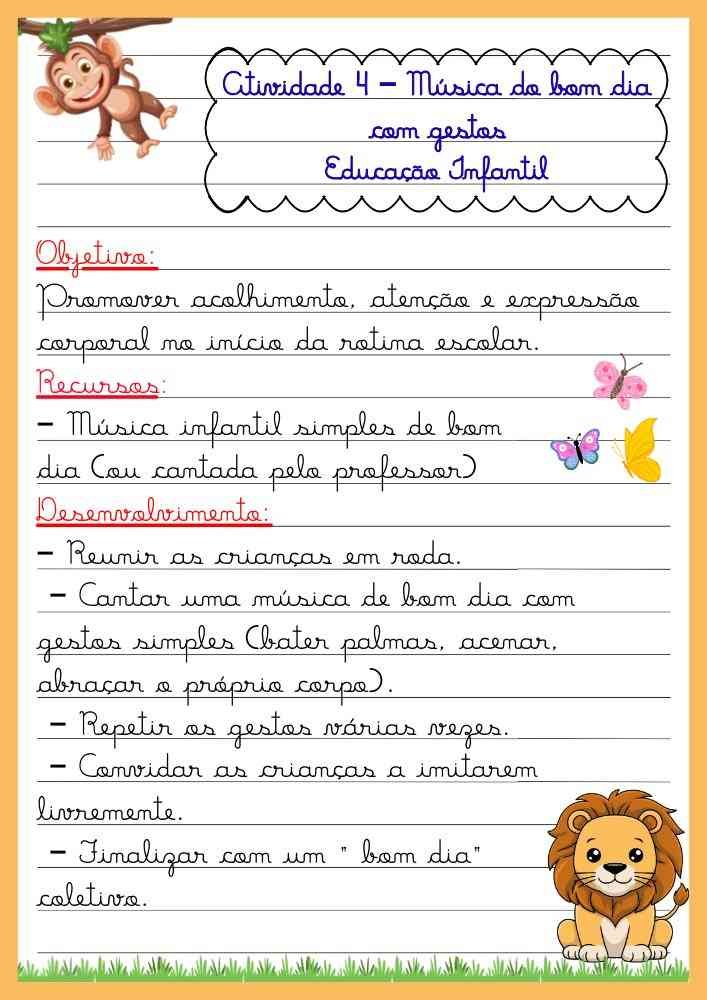 Atividade 4 - Música do bom dia
com gestos
Educação Infantil
Objetivo:
Promover acolhimento, atenção e expressão
corporal no início da rotina escolar.
Recursos:
- Música infantil simples de bom
dia (ou cantada pelo professor)
Desenvolvimento:
- Reunir as crianças em roda.
- Cantar uma música de bom dia com
gestos simples (bater palmas, acenar,
abraçar o próprio corpo).
- Repetir os gestos várias vezes.
- Convidar as crianças a imitarem
livremente.
- Finalizar com um " bom dia"
coletivo.